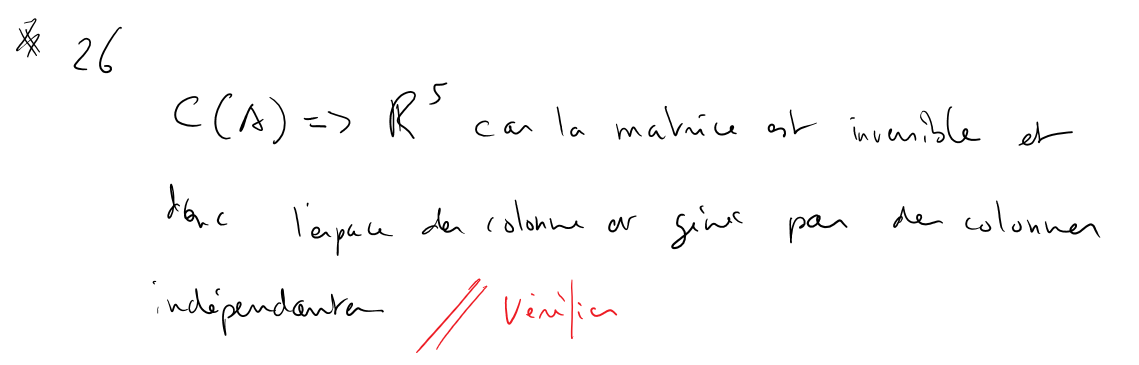 26
C(A) => ℝ⁵ car la matrice est inversible et
donc l'espace des colonne est généré par des colonnes
indépendantes // Vérifier